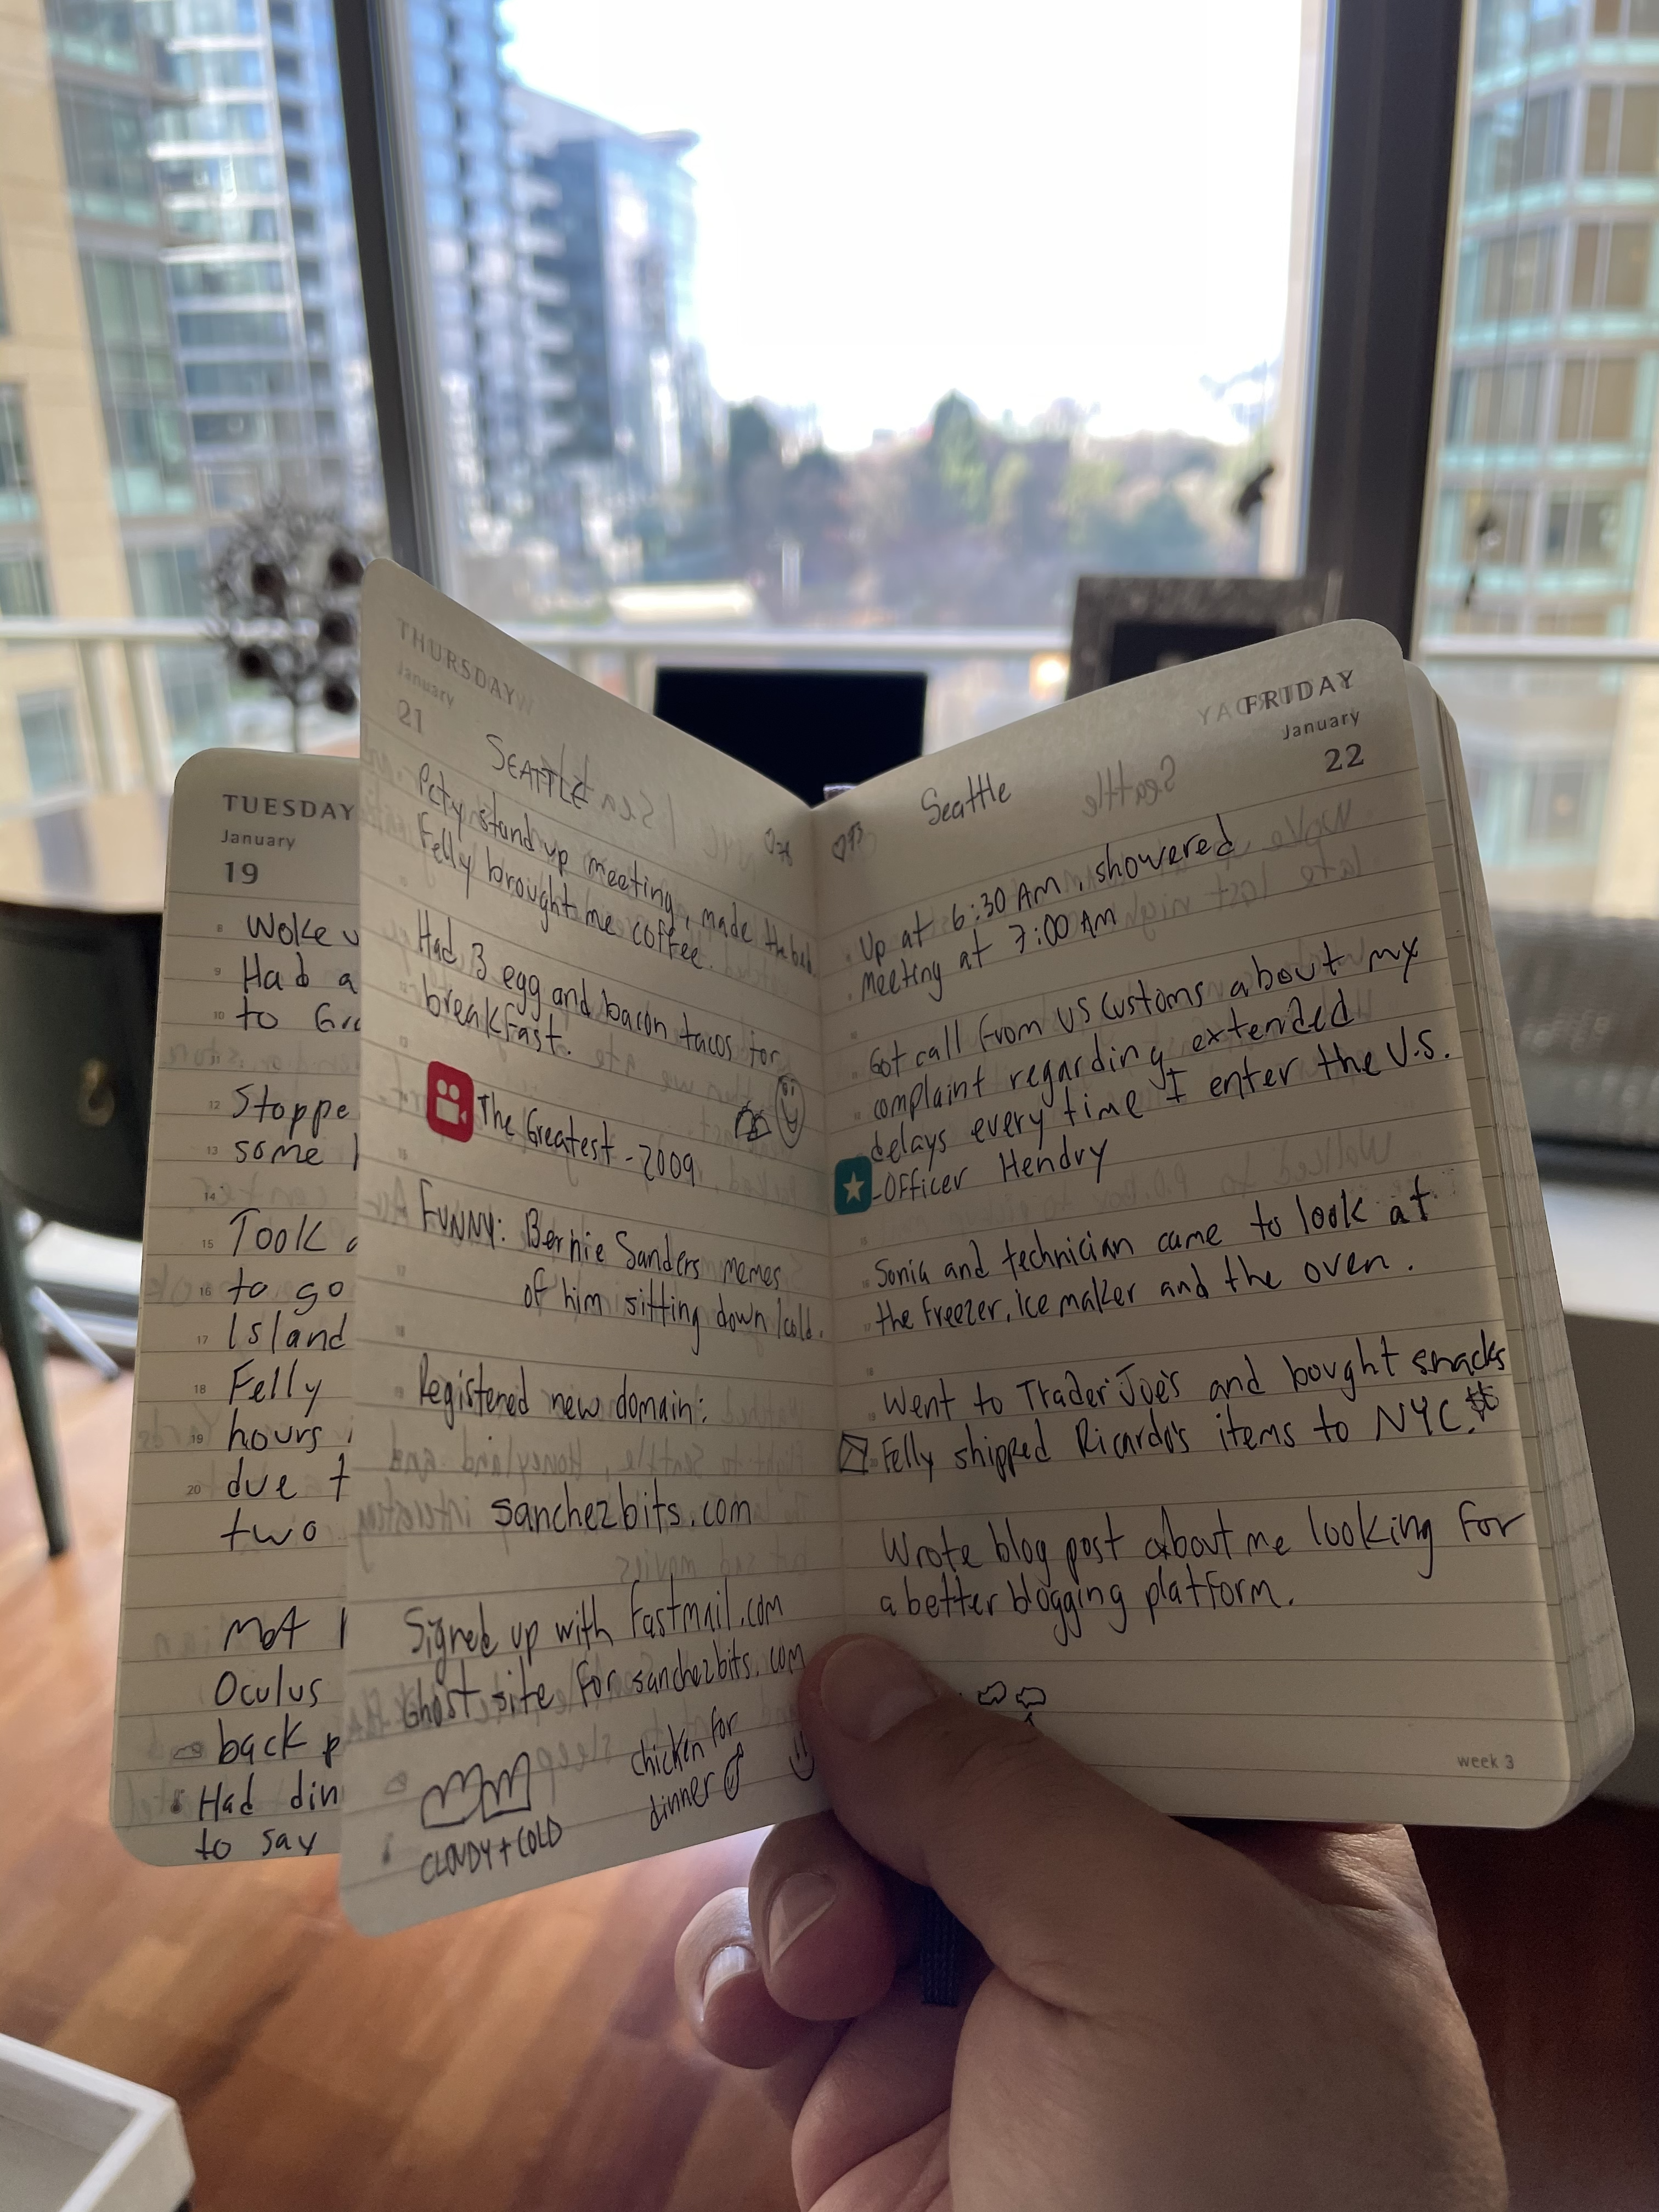 TUESDAY
January
19
8 Woke
9 Had a
10 to
12 Stoppe
13 some
14
15 Took
16 to go
17 Island
18 Felly
19 hours
20 due t
two
Met
Oculus
back
Had din
to say
THURSDAY
January
21
SEATTLE
stand up meeting, made the bed.
Felly brought me coffee.
Had 3 egg and bacon tacos for
breakfast.
The Greatest - 2009
FUNNY: Bernie Sanders memes
of him sitting down/cold.
Registered new domain:
sanchezbits.com
Signed up with Fastmail.com
Ghost site for sanchezbits.com
chicken for
dinner
CLOUDY + COLD
FRIDAY
January
22
Seattle
Up at 6:30 AM, showered
meeting at 7:00 AM
Got call from US Customs about my
complaint regarding extended
delays every time I enter the U.S.
-Officer Hendry
Sonia and technician came to look at
the freezer, ice maker and the oven.
Went to Trader Joe's and bought snacks
Felly shipped Ricardo's items to NYC.
Wrote blog post about me looking for
a better blogging platform.
week 3